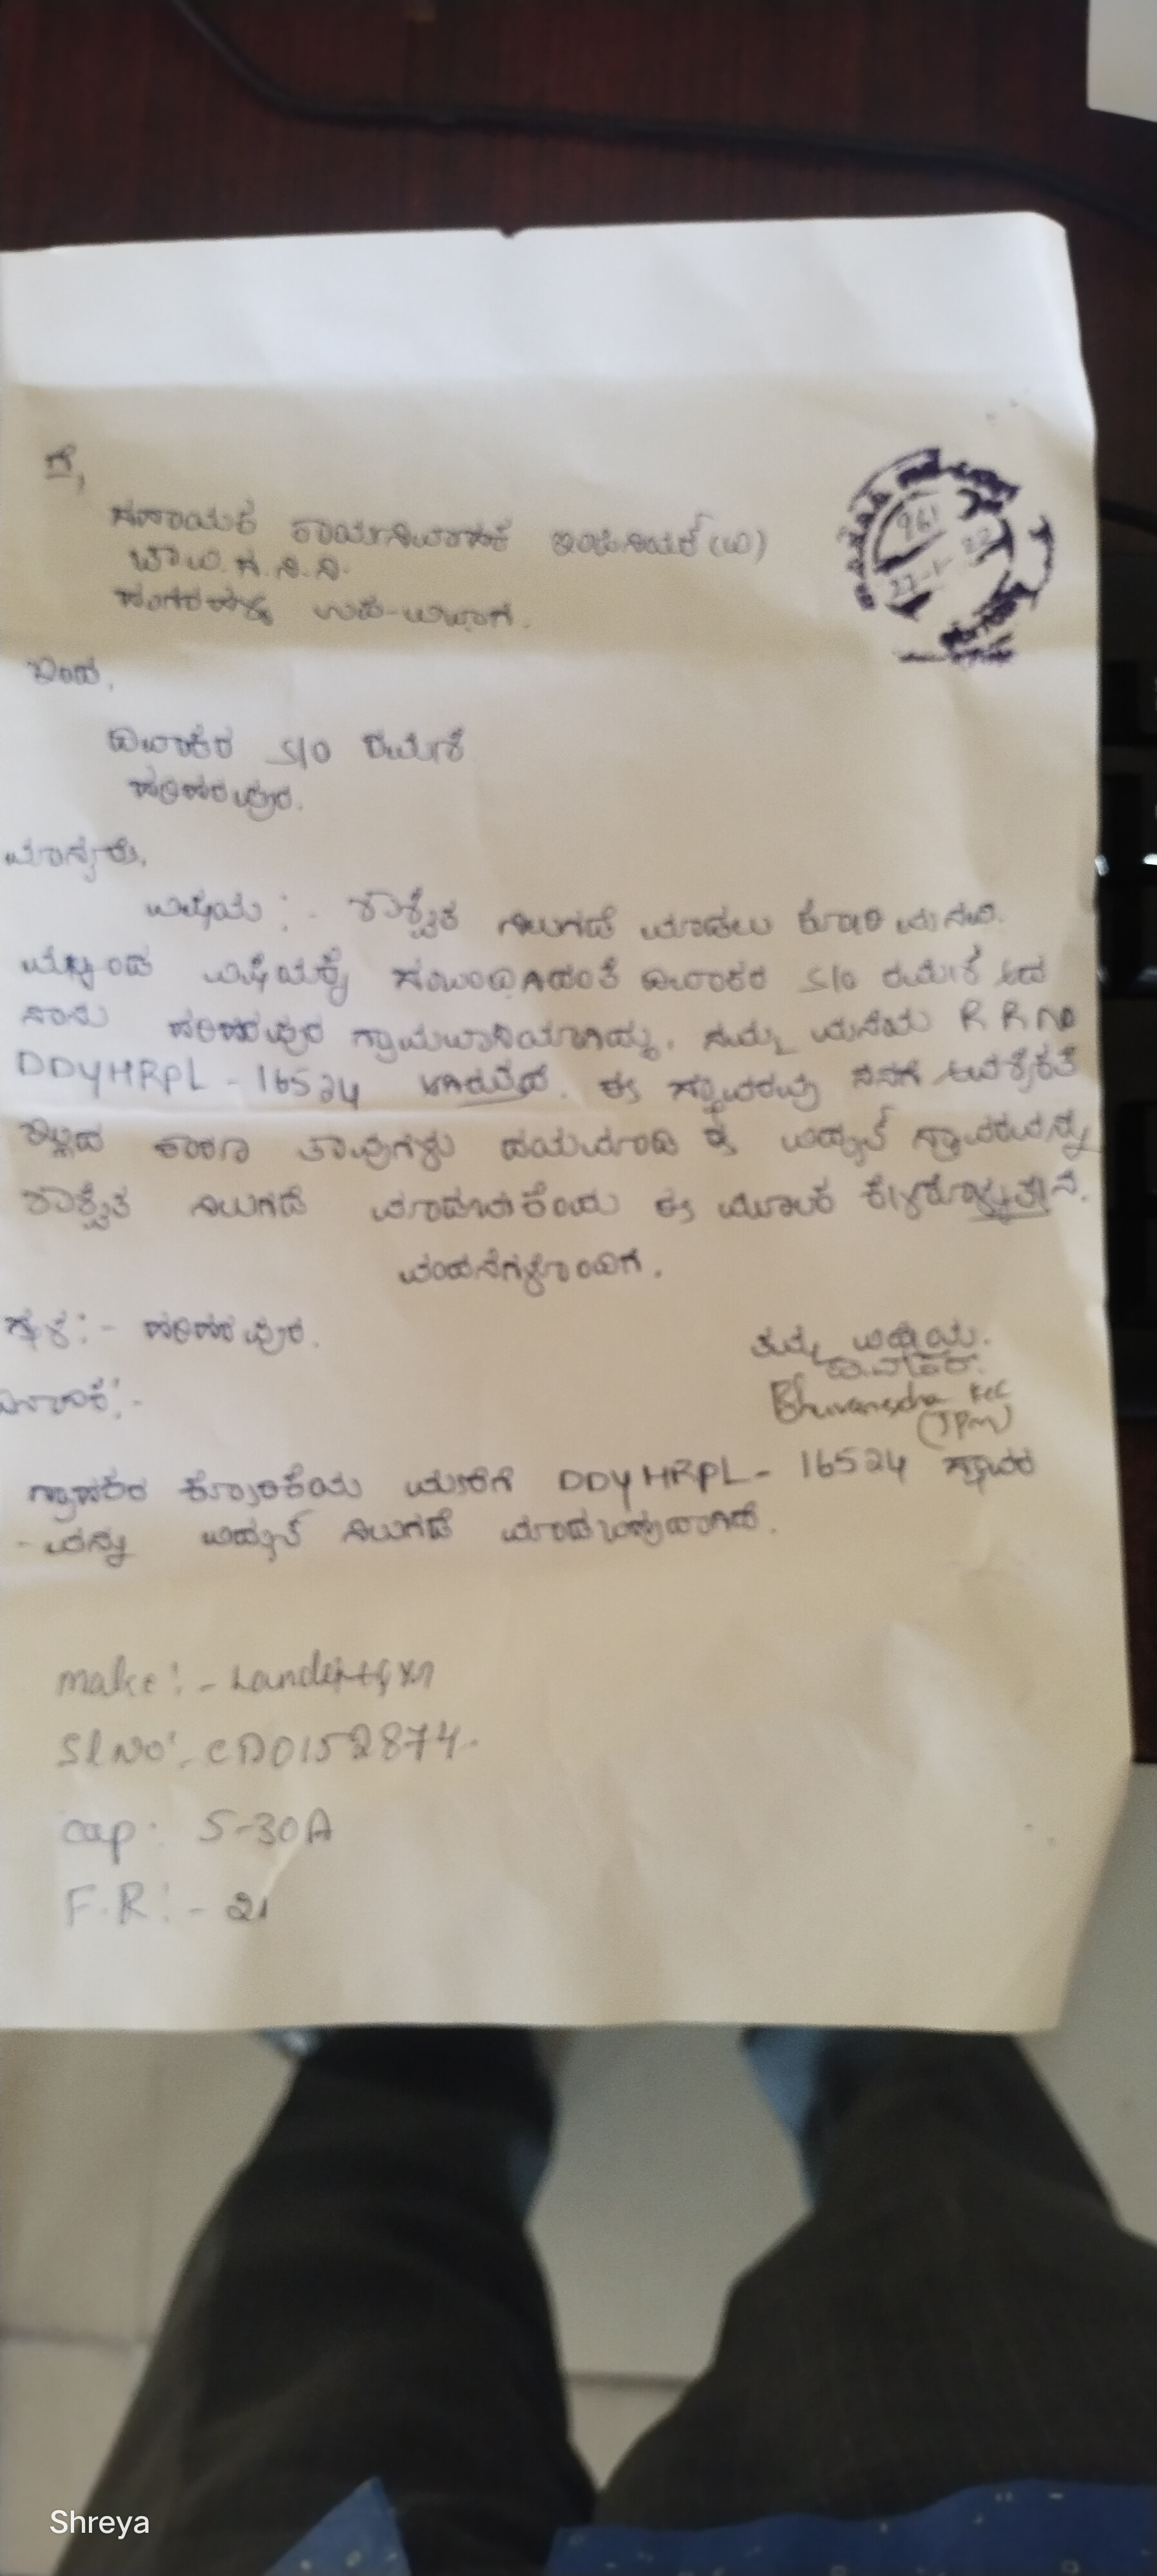 ಗೆ,
ಸಹಾಯಕ ಕಾರ್ಯನಿರ್ವಾಹಕ ಇಂಜಿನಿಯರ್ (ವಿ)
ಚಾ.ವಿ.ಸ.ನಿ.ನಿ.
ಉಪ-ವಿಭಾಗ.
961
22-1-22
ಇಂದ,
ದಿವಾಕರ S/o ರಮೇಶ
ಹರಿಹರಪುರ.
ಮಾನ್ಯರೆ,
ವಿಷಯ :- ಶಾಶ್ವತ ನಿಲುಗಡೆ ಮಾಡಲು ಕೋರಿ ಮನವಿ.
ಮೇಲ್ಕಂಡ ವಿಷಯಕ್ಕೆ ಸಂಬಂಧಿಸಿದಂತೆ ದಿವಾಕರ S/o ರಮೇಶ ಆದ
ನಾನು ಹರಿಹರಪುರ ಗ್ರಾಮವಾಸಿಯಾಗಿದ್ದು, ನಮ್ಮ ಮನೆಯ R R no
DDYHRPL - 16524 ಆಗಿರುತ್ತದೆ. ಈ ಸ್ಥಾವರವು ನನಗೆ ಅವಶ್ಯಕತೆ
ಇಲ್ಲದ ಕಾರಣ ತಾವುಗಳು ದಯಮಾಡಿ ಈ ವಿದ್ಯುತ್ ಸ್ಥಾವರವನ್ನು
ಶಾಶ್ವತ ನಿಲುಗಡೆ ಮಾಡಬೇಕೆಂದು ಈ ಮೂಲಕ ಕೇಳಿಕೊಳ್ಳುತ್ತೇನೆ.
ವಂದನೆಗಳೊಂದಿಗೆ.
ಸ್ಥಳ :- ಹರಿಹರಪುರ.
ತಮ್ಮ ವಿಧೇಯ.
ದಿನಾಂಕ :-
(JPM)
ಗ್ರಾಹಕರ ಕೋರಿಕೆಯ ಮೇರೆಗೆ DDYHRPL - 16524 ಸ್ಥಾವರ
- ವನ್ನು ವಿದ್ಯುತ್ ನಿಲುಗಡೆ ಮಾಡಬಹುದಾಗಿದೆ.
make :- Landis+Gyr
Sl No :- CD0152874.
cap : 5-30A
F.R :- 21
Shreya